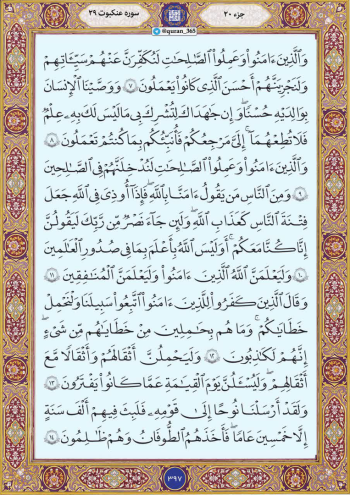 سوره عنکبوت ۲۹
@quran_365
جزء ۲۰
وَٱلَّذِينَ ءَامَنُوا۟ وَعَمِلُوا۟ ٱلصَّٰلِحَٰتِ لَنُكَفِّرَنَّ عَنْهُمْ سَيِّـَٔاتِهِمْ
وَلَنَجْزِيَنَّهُمْ أَحْسَنَ ٱلَّذِى كَانُوا۟ يَعْمَلُونَ ۝٧ وَوَصَّيْنَا ٱلْإِنسَٰنَ
بِوَٰلِدَيْهِ حُسْنًا ۖ وَإِن جَٰهَدَاكَ لِتُشْرِكَ بِى مَا لَيْسَ لَكَ بِهِۦ عِلْمٌ
فَلَا تُطِعْهُمَآ ۚ إِلَىَّ مَرْجِعُكُمْ فَأُنَبِّئُكُم بِمَا كُنتُمْ تَعْمَلُونَ ۝٨
وَٱلَّذِينَ ءَامَنُوا۟ وَعَمِلُوا۟ ٱلصَّٰلِحَٰتِ لَنُدْخِلَنَّهُمْ فِى ٱلصَّٰلِحِينَ
۝٩ وَمِنَ ٱلنَّاسِ مَن يَقُولُ ءَامَنَّا بِٱللَّهِ فَإِذَآ أُوذِىَ فِى ٱللَّهِ جَعَلَ
فِتْنَةَ ٱلنَّاسِ كَعَذَابِ ٱللَّهِ وَلَئِن جَآءَ نَصْرٌ مِّن رَّبِّكَ لَيَقُولُنَّ
إِنَّا كُنَّا مَعَكُمْ ۚ أَوَلَيْسَ ٱللَّهُ بِأَعْلَمَ بِمَا فِى صُدُورِ ٱلْعَٰلَمِينَ
۝١٠ وَلَيَعْلَمَنَّ ٱللَّهُ ٱلَّذِينَ ءَامَنُوا۟ وَلَيَعْلَمَنَّ ٱلْمُنَٰفِقِينَ ۝١١
وَقَالَ ٱلَّذِينَ كَفَرُوا۟ لِلَّذِينَ ءَامَنُوا۟ ٱتَّبِعُوا۟ سَبِيلَنَا وَلْنَحْمِلْ
خَطَٰيَٰكُمْ وَمَا هُم بِحَٰمِلِينَ مِنْ خَطَٰيَٰهُم مِّن شَىْءٍ ۖ
إِنَّهُمْ لَكَٰذِبُونَ ۝١٢ وَلَيَحْمِلُنَّ أَثْقَالَهُمْ وَأَثْقَالًا مَّعَ
أَثْقَالِهِمْ ۖ وَلَيُسْـَٔلُنَّ يَوْمَ ٱلْقِيَٰمَةِ عَمَّا كَانُوا۟ يَفْتَرُونَ ۝١٣
وَلَقَدْ أَرْسَلْنَا نُوحًا إِلَىٰ قَوْمِهِۦ فَلَبِثَ فِيهِمْ أَلْفَ سَنَةٍ
إِلَّا خَمْسِينَ عَامًا فَأَخَذَهُمُ ٱلطُّوفَانُ وَهُمْ ظَٰلِمُونَ ۝١٤
۳۹۷